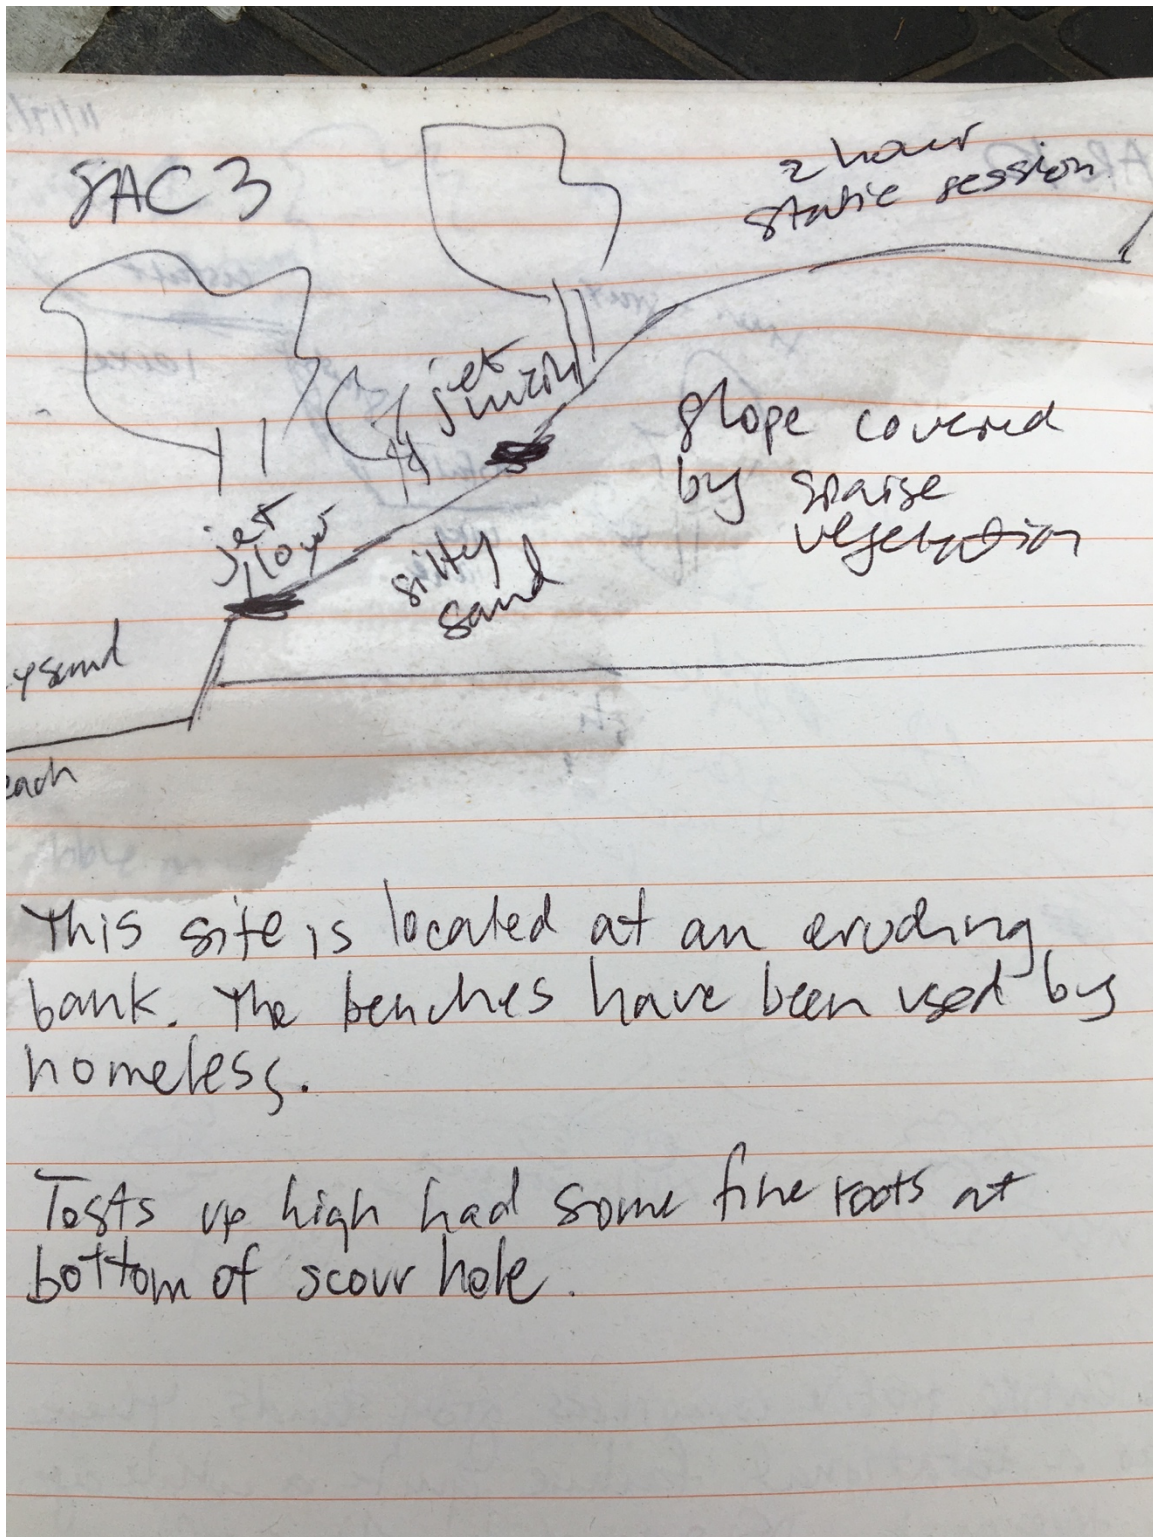 SAC 3
2 hour
static session
jet
slope covered
by sparse
vegetation
jet
silty
sand
sand
This site is located at an eroding
bank. The benches have been used by
homeless.
Tests up high had some fine roots at
bottom of scour hole.